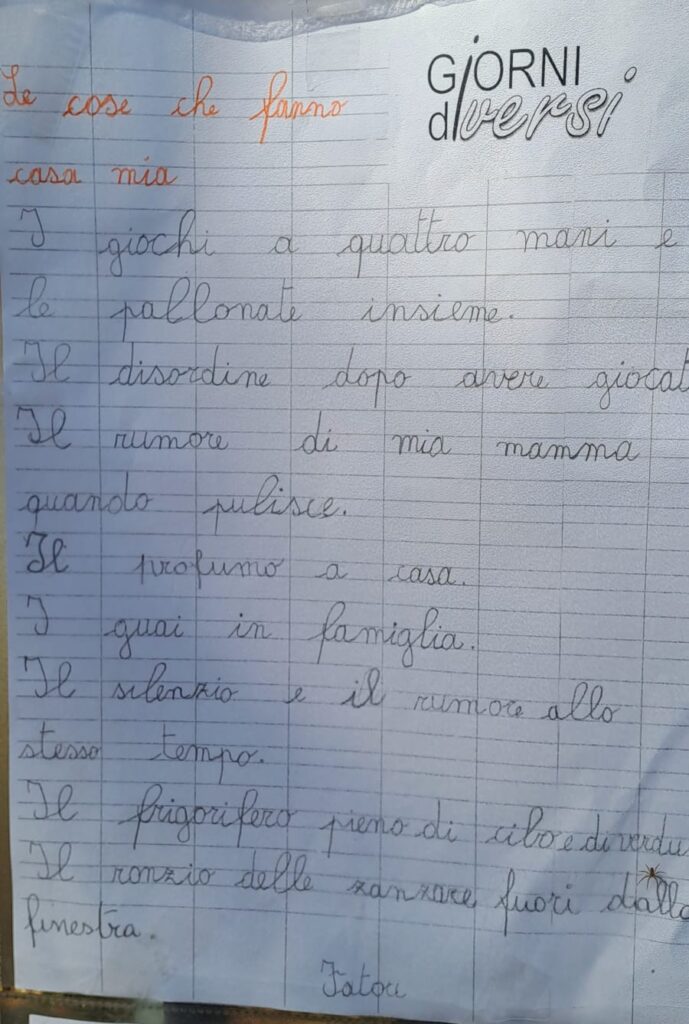 GiORNI
diversi
Le cose che fanno
casa mia
I giochi a quattro mani e
le pallonate insieme.
Il disordine dopo avere giocat
Il rumore di mia mamma
quando pulisce.
Il profumo a casa.
I guai in famiglia.
Il silenzio e il rumore allo
stesso tempo.
Il frigorifero pieno di cibo e di verdu
Il ronzio delle zanzare fuori dalla
finestra.
Fatou